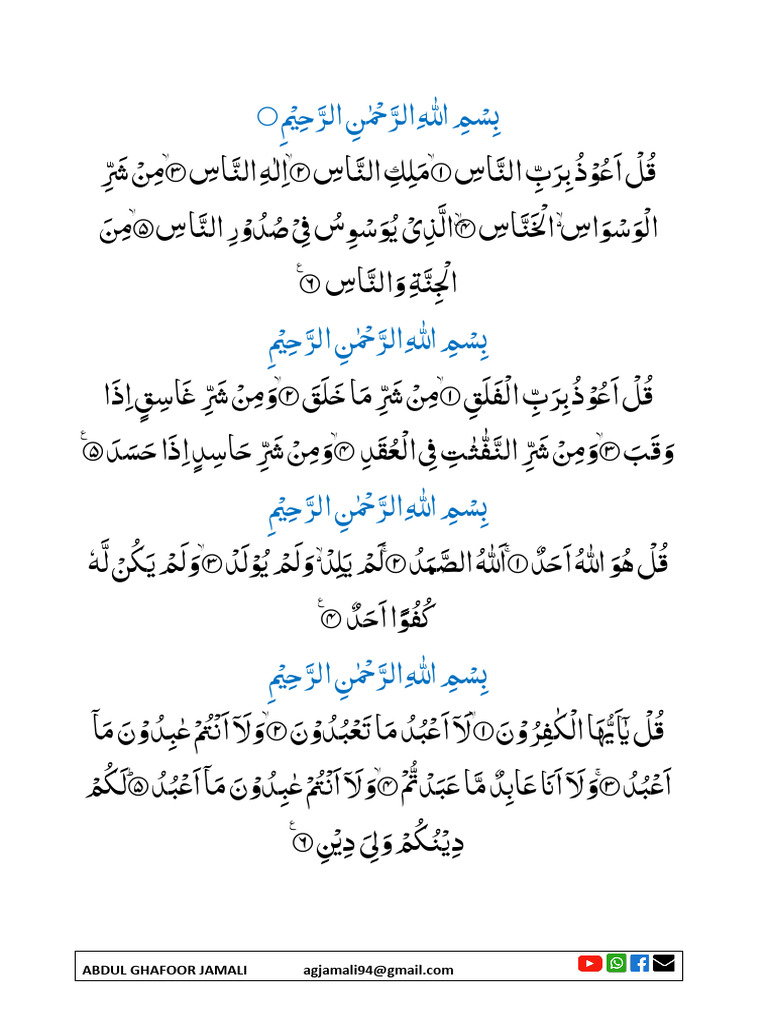 بِسۡمِ اللهِ الرَّحۡمٰنِ الرَّحِيۡمِ ۝
قُلۡ اَعُوۡذُ بِرَبِّ النَّاسِۙ‏ ﴿۱﴾ مَلِكِ النَّاسِۙ‏ ﴿۲﴾ اِلٰهِ النَّاسِۙ‏ ﴿۳﴾ مِنۡ شَرِّ
الۡوَسۡوَاسِ ۙ الۡخَـنَّاسِ ۙ‏ ﴿۴﴾ الَّذِىۡ يُوَسۡوِسُ فِىۡ صُدُوۡرِ النَّاسِۙ‏ ﴿۵﴾ مِنَ
الۡجِنَّةِ وَالنَّاسِ ﴿۶﴾ ع
بِسۡمِ اللهِ الرَّحۡمٰنِ الرَّحِيۡمِ
قُلۡ اَعُوۡذُ بِرَبِّ الۡفَلَقِۙ‏ ﴿۱﴾ مِنۡ شَرِّ مَا خَلَقَۙ‏ ﴿۲﴾ وَمِنۡ شَرِّ غَاسِقٍ اِذَا
وَقَبَۙ‏ ﴿۳﴾ وَمِنۡ شَرِّ النَّفّٰثٰتِ فِى الۡعُقَدِۙ‏ ﴿۴﴾ وَمِنۡ شَرِّ حَاسِدٍ اِذَا حَسَدَ ﴿۵﴾ ع
بِسۡمِ اللهِ الرَّحۡمٰنِ الرَّحِيۡمِ
قُلۡ هُوَ اللهُ اَحَدٌ‌ ۚ‏ ﴿۱﴾ اَللهُ الصَّمَدُ‌ ۚ‏ ﴿۲﴾ لَمۡ يَلِدۡ ۙ وَلَمۡ يُوۡلَدۡ ۙ‏ ﴿۳﴾ وَلَمۡ يَكُنۡ لَّهٗ
كُفُوًا اَحَدٌ ﴿۴﴾ ع
بِسۡمِ اللهِ الرَّحۡمٰنِ الرَّحِيۡمِ
قُلۡ يٰۤاَيُّهَا الۡكٰفِرُوۡنَۙ‏ ﴿۱﴾ لَاۤ اَعۡبُدُ مَا تَعۡبُدُوۡنَۙ‏ ﴿۲﴾ وَلَاۤ اَنۡـتُمۡ عٰبِدُوۡنَ مَاۤ
اَعۡبُدُ‌ ۚ‏ ﴿۳﴾ وَلَاۤ اَنَا عَابِدٌ مَّا عَبَدۡتُّمۡۙ‏ ﴿۴﴾ وَلَاۤ اَنۡـتُمۡ عٰبِدُوۡنَ مَاۤ اَعۡبُدُ ؕ‏ ﴿۵﴾ لَـكُمۡ
دِيۡنُكُمۡ وَلِىَ دِيۡنِ ﴿۶﴾ ع
ABDUL GHAFOOR JAMALI agjamali94@gmail.com